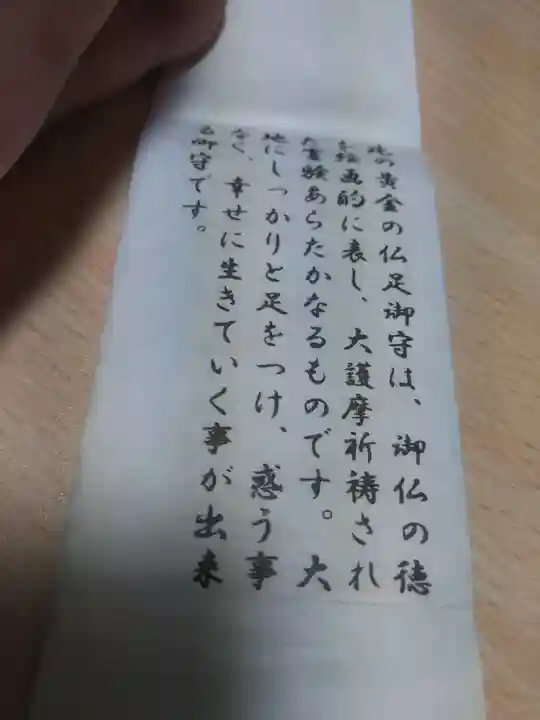 此の黄金の仏足御守は、御仏の徳
を絵画的に表し、大護摩祈祷され
た霊験あらたかなるものです。大
地にしっかりと足をつけ、惑う事
なく、幸せに生きていく事が出来
る御守です。